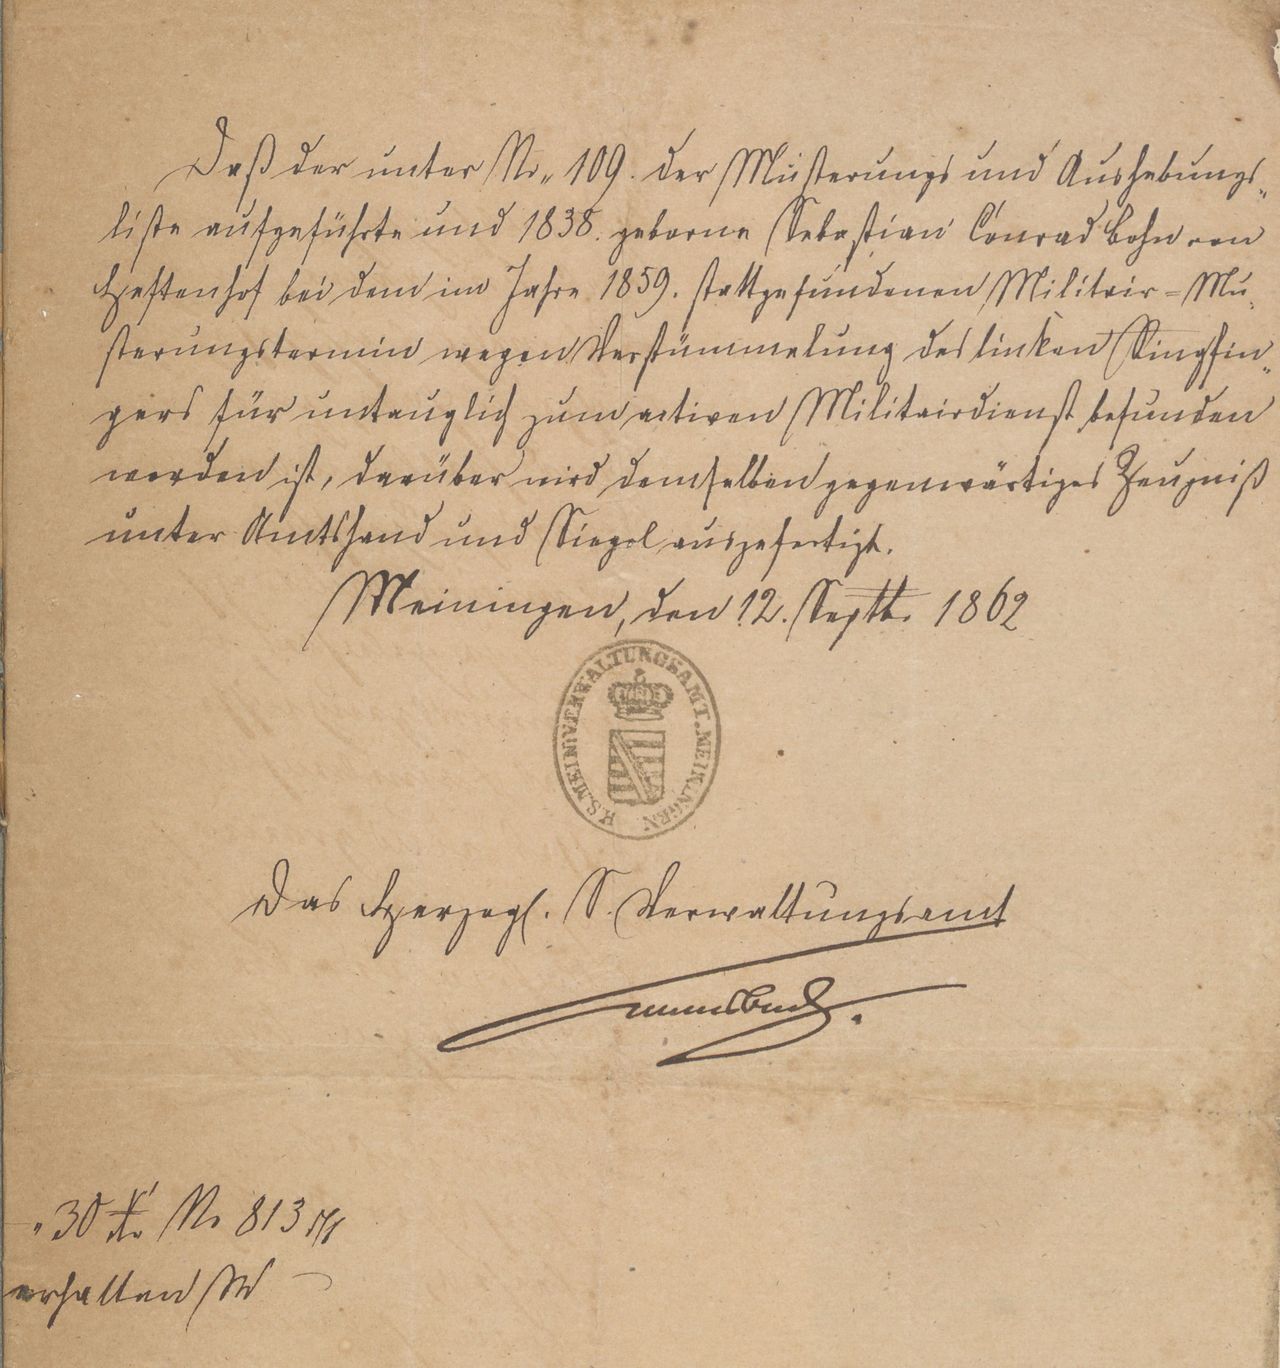 Daß der unter No. 109. der Musterungs und Aushebungs-
liste aufgeführte und 1838. geborne Sebastian Conrad Bohn von
bei dem im Jahre 1859. stattgefundenen Militair-Mu-
sterungstermin wegen Verstümmelung des linken Ringfin-
gers für untauglich zum activen Militairdienst befunden
worden ist, darüber wird demselben gegenwärtiges Zeugniß
unter Amtshand und Siegel ausgefertigt.
Meiningen, den 12. Septbr. 1862
H.S. MEIN. VERWALTUNGSAMT. MEININGEN.
Das Herzogl. S. Verwaltungsamt
30 Xr No 813
erhalten